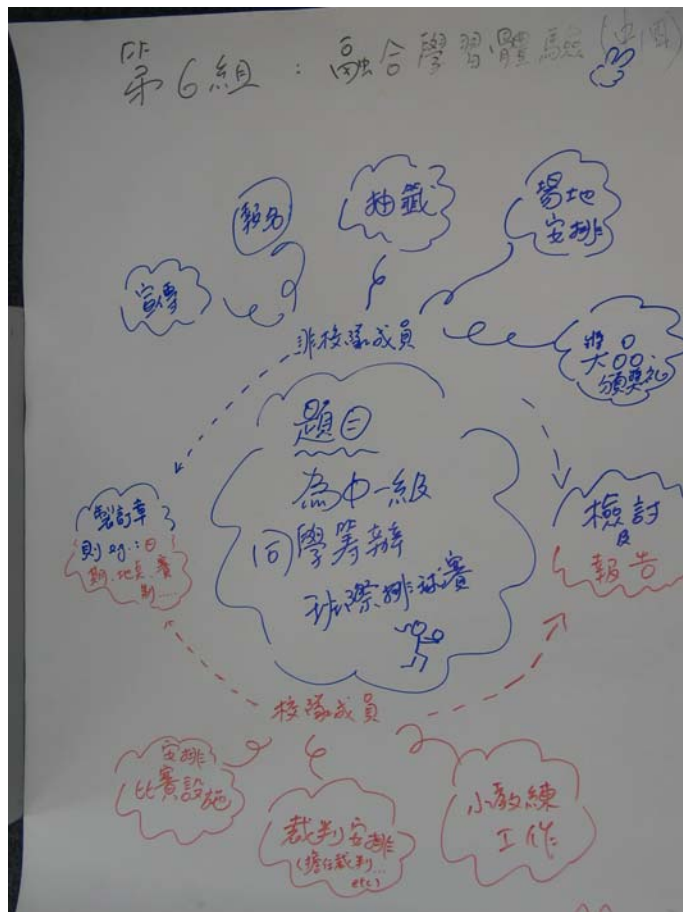 第6組：融合學習體驗
報名
抽籤
場地
安排
宣傳
非校隊成員
頒獎禮
題目
為中一級
同學籌辦
班際排球賽
製訂章
則 eg：日
期、地點、賽
制...
檢討
及
報告
校隊成員
安排
比賽設施
裁判安排
(擔任裁判...
etc)
小教練
工作